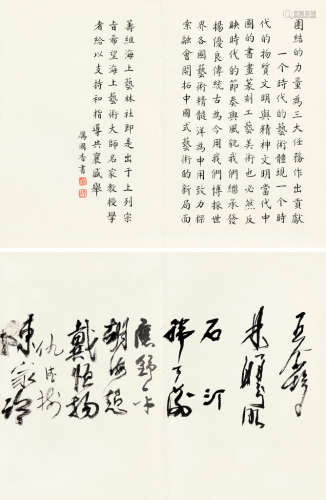 團結的力量為三大任務作出貢獻
一个時代的藝術體現一个時
代的物質文明與精神文明當代中
國的書畫篆刻工藝美術也必然反
映時代的節奏與風貌我們繼承發
揚優良傳統古為今用我們博採世
界各國藝術精髓洋為中用致力探
索融會開拓中國式藝術的新局面
籌組海上藝林社即是出于上列宗
旨希望海上藝術大師名家教授學
者給以支持和指導共襄盛舉
石汀
胡海超
戴恒揚
仇德樹
陳家泠